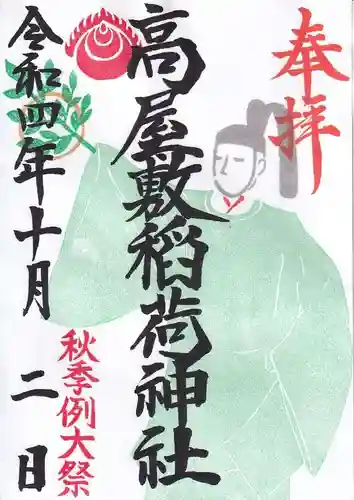 奉拝
高屋敷稲荷神社
秋季例大祭
令和四年十月二日